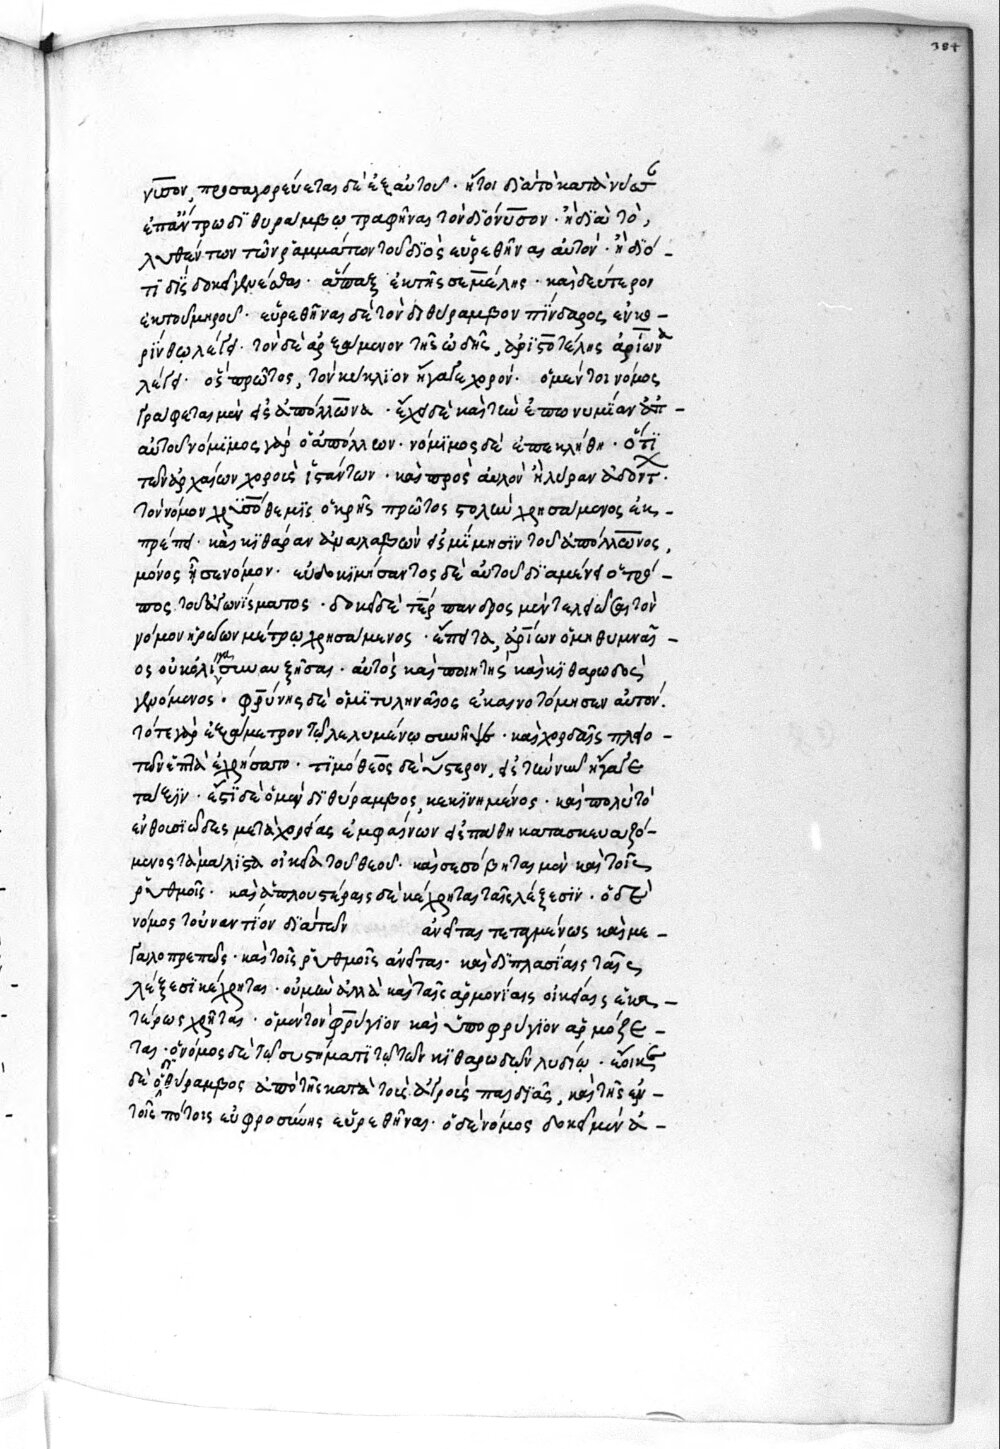 384
νυσον, προσαγορεύεται δὲ ἐξ αὐτοῦ · ἤτοι διὰ τὸ κατὰ νύσσ
ἐπ' ἄντρω διθυράμβω τραφῆναι τὸν διόνυσον · ἢ διὰ τὸ,
λυθέντων τῶν ῥαμμάτων τοῦ διὸς εὑρεθῆναι αὐτόν · ἢ διό-
τι δὶς δοκεῖ γενέσθαι · ἅπαξ ἐκ τῆς σεμέλης · καὶ δεύτερον
ἐκ τοῦ μηροῦ · εὑρεθῆναι δὲ τὸν διθύραμβον πίνδαρος ἐν κο-
ρίνθω λέγει · τὸν δὲ ἀρξάμενον τῆς ὠδῆς, ἀριστοτέλης ἀρίωνα
λέγει · ὃς πρῶτος, τὸν κύκλιον ἤγαγε χορόν · ὁ μέντοι νόμος
γράφεται μὲν εἰς ἀπόλλωνα · ἔχει δὲ καὶ τὴν ἐπωνυμίαν ἀπ-
αὐτοῦ νόμιμος γὰρ ὁ ἀπόλλων · νόμιμος δὲ ἐπεκλήθη · ὅτι
τῶν ἀρχαίων χοροὺς ἱστάντων · καὶ πρὸς αὐλὸν ἢ λύραν ἀδόντ ·
τὸν νόμον χρυσόθεμις ὁ κρὴς πρῶτος στολῆ χρησάμενος ἐκ-
πρεπεῖ · καὶ κιθάραν ἀναλαβὼν εἰς μίμησιν τοῦ ἀπόλλωνος,
μόνος ἦσε νόμον · εὐδοκιμήσαντος δὲ αὐτοῦ διαμένει ὁ τρό-
πος τοῦ ἀγωνίσματος · δοκεῖ δὲ τέρπανδρος μὲν τελειῶσαι τὸν
νόμον ἡρώων μέτρω χρησάμενος · ἔπειτα, ἀρίων ὁ μηθυμναῖ-
ος οὐκ ὀλίγα συναυξῆσαι · αὐτὸς καὶ ποιητὴς καὶ κιθαρωδὸς
γενόμενος · φρύνης δὲ ὁ μιτυληναῖος ἐκαινοτόμησεν αὐτόν ·
τό τε γὰρ ἑξάμετρον τῶ λελυμένω συνῆψε · καὶ χορδαῖς πλειό-
των ἑπτὰ ἐχρήσατο · τιμόθεος δὲ ὕστερον, εἰς τὴν νῦν ἤγαγε
τάξιν · ἔστι δὲ ὁ μὲν διθύραμβος, κεκινημένος · καὶ πολὺ τὸ
ἐνθουσιῶδες μετὰ χορείας ἐμφαίνων εἰς πάθη κατασκευαζό-
μενος τὰ μάλιστα οἰκεῖα τοῦ θεοῦ · καὶ σεσόβηται μὲν καὶ τοῖς
ῥυθμοῖς · καὶ ἁπλουστέραις δὲ κέχρηται ταῖς λέξεσιν · ὁ δὲ
νόμος τοὐναντίον διὰ τῶν ἀνεῖται τεταγμένως καὶ με-
γαλοπρεπῶς · καὶ τοῖς ῥυθμοῖς ἀνεῖται · καὶ διπλασίαις ταῖς
λέξεσι κέχρηται · οὐ μὴν ἀλλὰ καὶ ταῖς ἁρμονίαις οἰκείαις ἑκα-
τέρως χρῆται · ὁ μὲν τὸν φρύγιον καὶ ὑποφρύγιον ἁρμόζε-
ται · ὁ νόμος δὲ τῶ συστήματι τῶ τῶν κιθαρωδῶν λυδίω · ἔοικε
δὲ ὁ διθύραμβος ἀπὸ τῆς κατὰ τοὺς ἀγροὺς παιδιᾶς, καὶ τῆς ἐν-
τοῖς πότοις εὐφροσύνης εὑρεθῆναι · ὁ δὲ νόμος δοκεῖ μὲν ἀ-